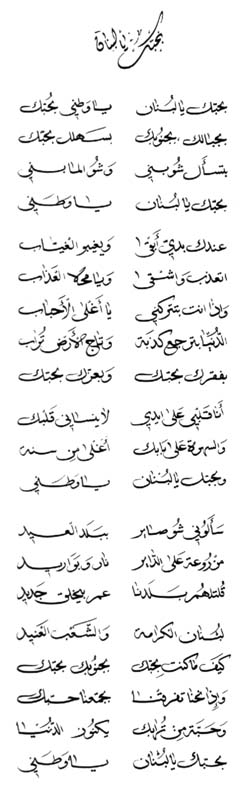 بحبك يا لبنان
بحبك يا لبنان يا وطني بحبك
بشمالك، بجنوبك بسهلك بحبك
بتسأل شو بني وشو الما بني
بحبك يا لبنان يا وطني
عندك بدي أبقى ويغيبو الغياب
اتعذب واشقى ويا محلا العذاب
وإذا انت بتتركني يا أغلى الأحباب
الدنيا بترجع كذبة وتاج الأرض تراب
بفقرك بحبك وبعزك بحبك
أنا قلبي على ايدي لا ينساني قلبك
والسهرة على بابك أغلى من سنة
وبحبك يا لبنان يا وطني
سألوني شو صاير ببلد العيد
مزروعة على الداير نار وبواريد
قلتلهم بلدنا عم بيخلق جديد
لبنان الكرامة والشعب العنيد
كيف ما كنت بحبك بجنونك بحبك
وإذا نحنا تفرقنا بيجمعنا حبك
وحبة من ترابك بكنوز الدنيا
بحبك يا لبنان يا وطني